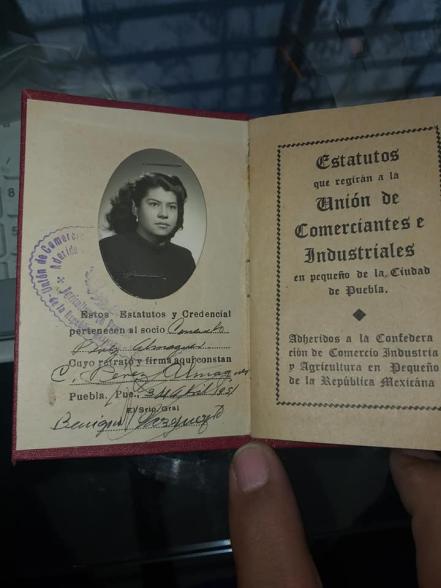 Unión de Comerc
Estos Estatutos y Credencial
pertenecen al socio Consuelo
Pérez Almaguer
Cuyo retrato y firma aquí constan
C. Perez Almaguer
Puebla, Pue., 24 Abril 1951
El Srio. Gral
Benigno
Estatutos
que regirán a la
Unión de
Comerciantes e
Industriales
en pequeño de la Ciudad
de Puebla.
Adheridos a la Confedera
ción de Comercio Industria
y Agricultura en Pequeño
de la República Mexicana